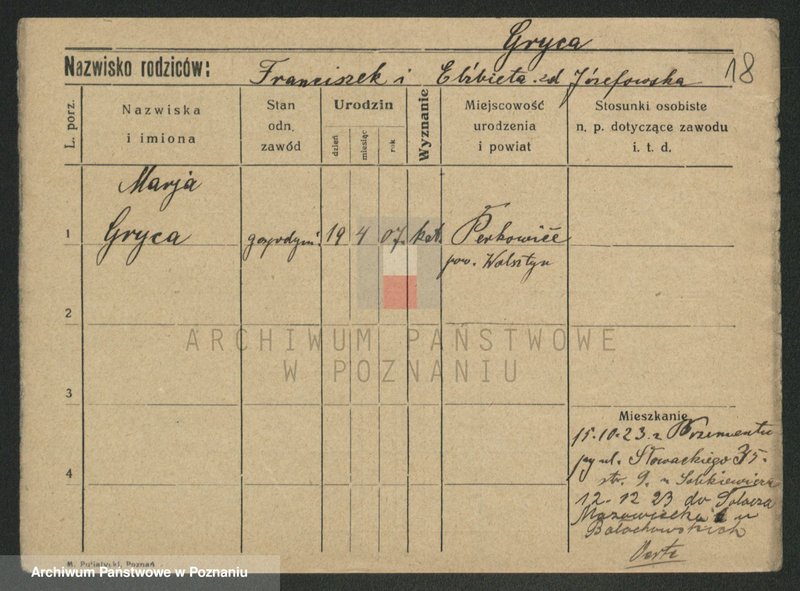 Gryca
Nazwisko rodziców: Franciszek i Elżbieta zd Józefowska 18
L. porz.
Nazwiska
i imiona
Stan
odn.
zawód
Urodzin
dzień
miesiąc
rok
Wyznanie
Miejscowość
urodzenia
i powiat
Stosunki osobiste
n. p. dotyczące zawodu
i. t. d.
Marja
1 Gryca gospodyni 19 4 07. kat. Perkowice
pow. Wolsztyn
2
ARCHIWUM PAŃSTWOWE
W POZNANIU
3
Mieszkanie
15.10.23 z
przy ul. Słowackiego 35
4 str. 9. u
12.12 23 do Sołacza
Mazowiecka u
M. Putiatycki, Poznań
Archiwum Państwowe w Poznaniu